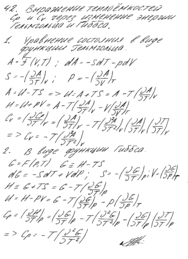 42. Выражение теплоёмкостей
Cp и Cv через изменение энергии
Гельмгольца и Гиббса.
1. Уравнение состояния в виде
функции Гельмгольца.
A = f(V,T); dA = -SdT - pdV
S = -(∂A/∂T)v; p = -(∂A/∂V)T
A = U - TS => U = A + TS = A - T(∂A/∂T)v
H = U + PV = A - T(∂A/∂T)v - V(∂A/∂V)T
=> Cv = -T(∂²A/∂T²)v
2. В виде функции Гиббса
G = F(P,T) G = H - TS
dG = -SdT + VdP; S = -(∂G/∂T)p; V = (∂G/∂P)T
H = G + TS = G - T(∂G/∂T)p
U = H - PV = G - T(∂G/∂T)p - p(∂G/∂P)T
=> Cp = -T(∂²G/∂T²)p